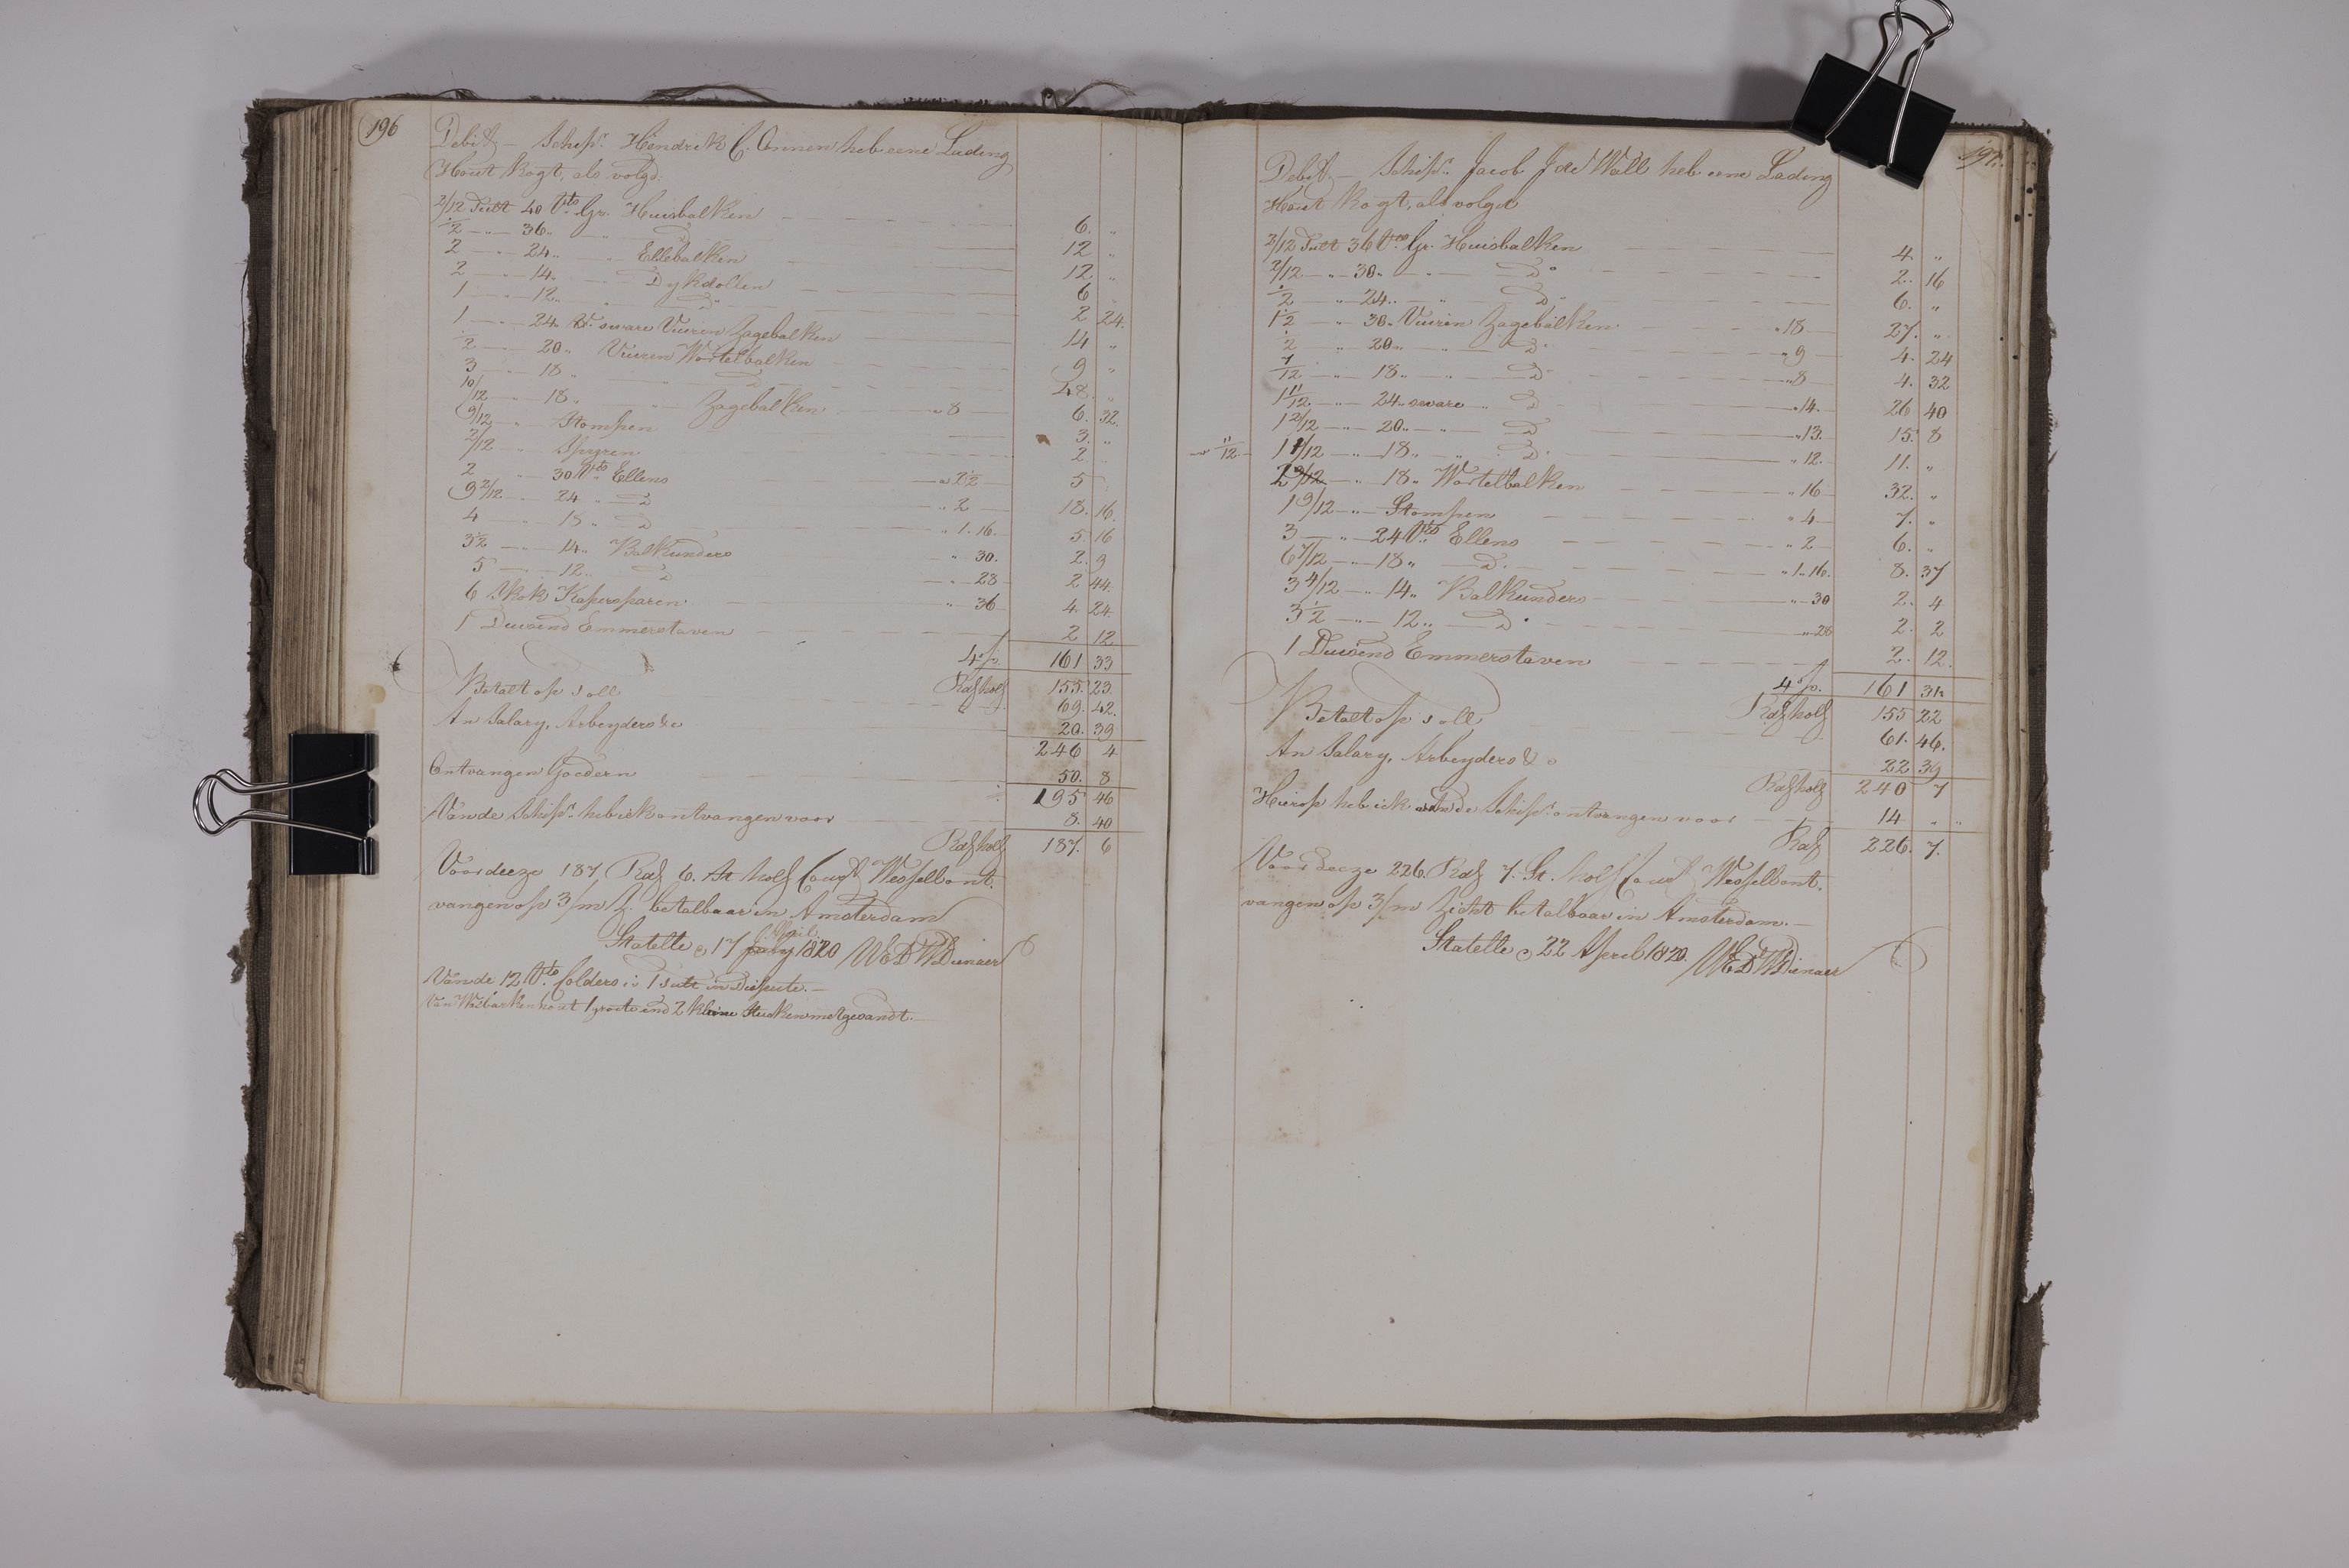 196
Debit, — Schipr. Hendrik C. Onnen heb eene Lading
Hout kogt, als volgd:
2/12 Tult 40 Vts. Gr. Huisbalken 6. "
1/2 — " — 36 " " Do 12 "
2 — " — 24 " " Ellebalken 12 "
2 — " — 14 " " Dykdollen 6 "
1 — " — 12 " " Do 2 24.
1 — " — 24 " sware Vuuren Zagebalken 14 "
1/2 — " — 20 " Vuuren Wortelbalken 9 "
3 — " — 18 " " Do 48. "
10/12 — " — 18 " " Zagebalken " 8 6. 32.
9/12 " Stompen 3. "
2/12 " Spyren 2.
2 " 30 Vts Ellens a 2 1/2 5
9 2/12 " 24 " D " 2 18. 16.
4 " 18 " D " 1. 16. 5. 16
3 1/2 — " 14 " Balkunders " 30. 2. 9
5 — " 12 " D " 28 2 44.
6 Skok Kapersparen " 36 4. 24.
1 Duisend Emmerstaven 2 12
4 sp. 161 33
Rds holl 155. 23.
Betalt op soll 69. 42.
An Salary, Arbeyders &c 20. 39
246 4
Ontvangen Goedern 50. 8
195 46
Van de Schipr. heb ick ontvangen voor 8. 40
Rds holl 187. 6
Voor deeze 187 Rds 6. St holl Court Wessel ont.
vangen op 3/m Z. betalbaar in Amsterdam
April
Statelle d 17 july 1820 WED WDienaer
Van de 12 Vts. Colders is 1 tult in Dispute. —
Van Wasbarkenhout 1 groote end 2 kleine Stucken metgesandt. —
197.
Debit. — Schipr. Jacob J de Wall heb eene Lading
Hout kogt, als volgd
2/12 Tult 36 Vts Gr. Huisbalken 4. "
2/12 — " — 30 " " Do 2. 16
1/2 " 24 " " D 6. "
1 1/2 " 30 " Vuuren Zagebalken " 18 27. "
1/2 " 20 " " D " 9 4. 24
7/12 — " — 18 " " D " 8 4. 32
1 11/12 — " — 24 " sware " D " 14. 26 40
1 2/12 — " — 20 " " D " 13. 15. 8
11/12 1 1/12 — " — 18 " " D " 12. 11. "
2 3/12 — " — 18 " Wortelbalken " 16 32. "
1 9/12 — " — Stompen " 4 7. "
3 — " — 24 Vts Ellens " 2 6. "
6 1/12 — " — 18 " D. " 1. 16. 8. 37
3 4/12 — " — 14 " Balkunders " 30 2. 4
3 1/2 — " — 12 " D " 28 2. 2
1 Duisend Emmerstaven 2. 12.
4 sp. 161 31
Rds holl 155 22
Betalt op soll 61. 46.
An Salary, Arbeyders &c 22 39
Rds holl 240 7
Hierop heb ick van de Schipr. ontvangen voor 14 " "
Rds 226. 7.
Voor deeze 226. Rds 7. St. holl Court Wessel ont.
vangen op 3/m Zicht betalbaar in Amsterdam. —
Statelle d 22 April 1820. WED WDienaer